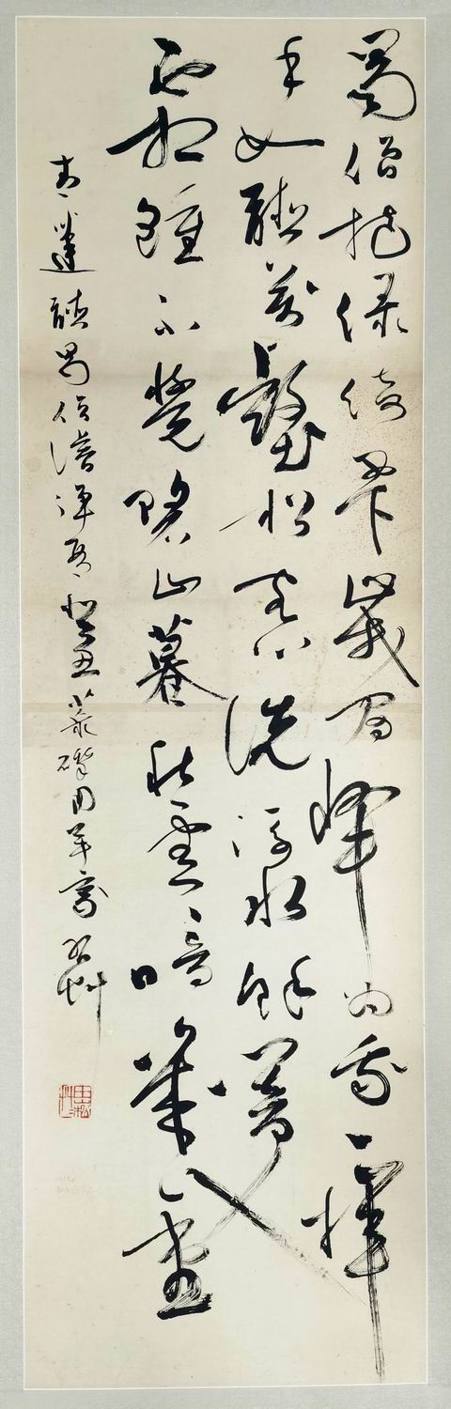 蜀僧抱綠綺西下峨眉峰為我一揮
手如聽萬壑松客心洗流水餘響入
霜鍾不覺碧山暮秋雲暗幾重
青蓮聽蜀僧濬彈琴癸丑